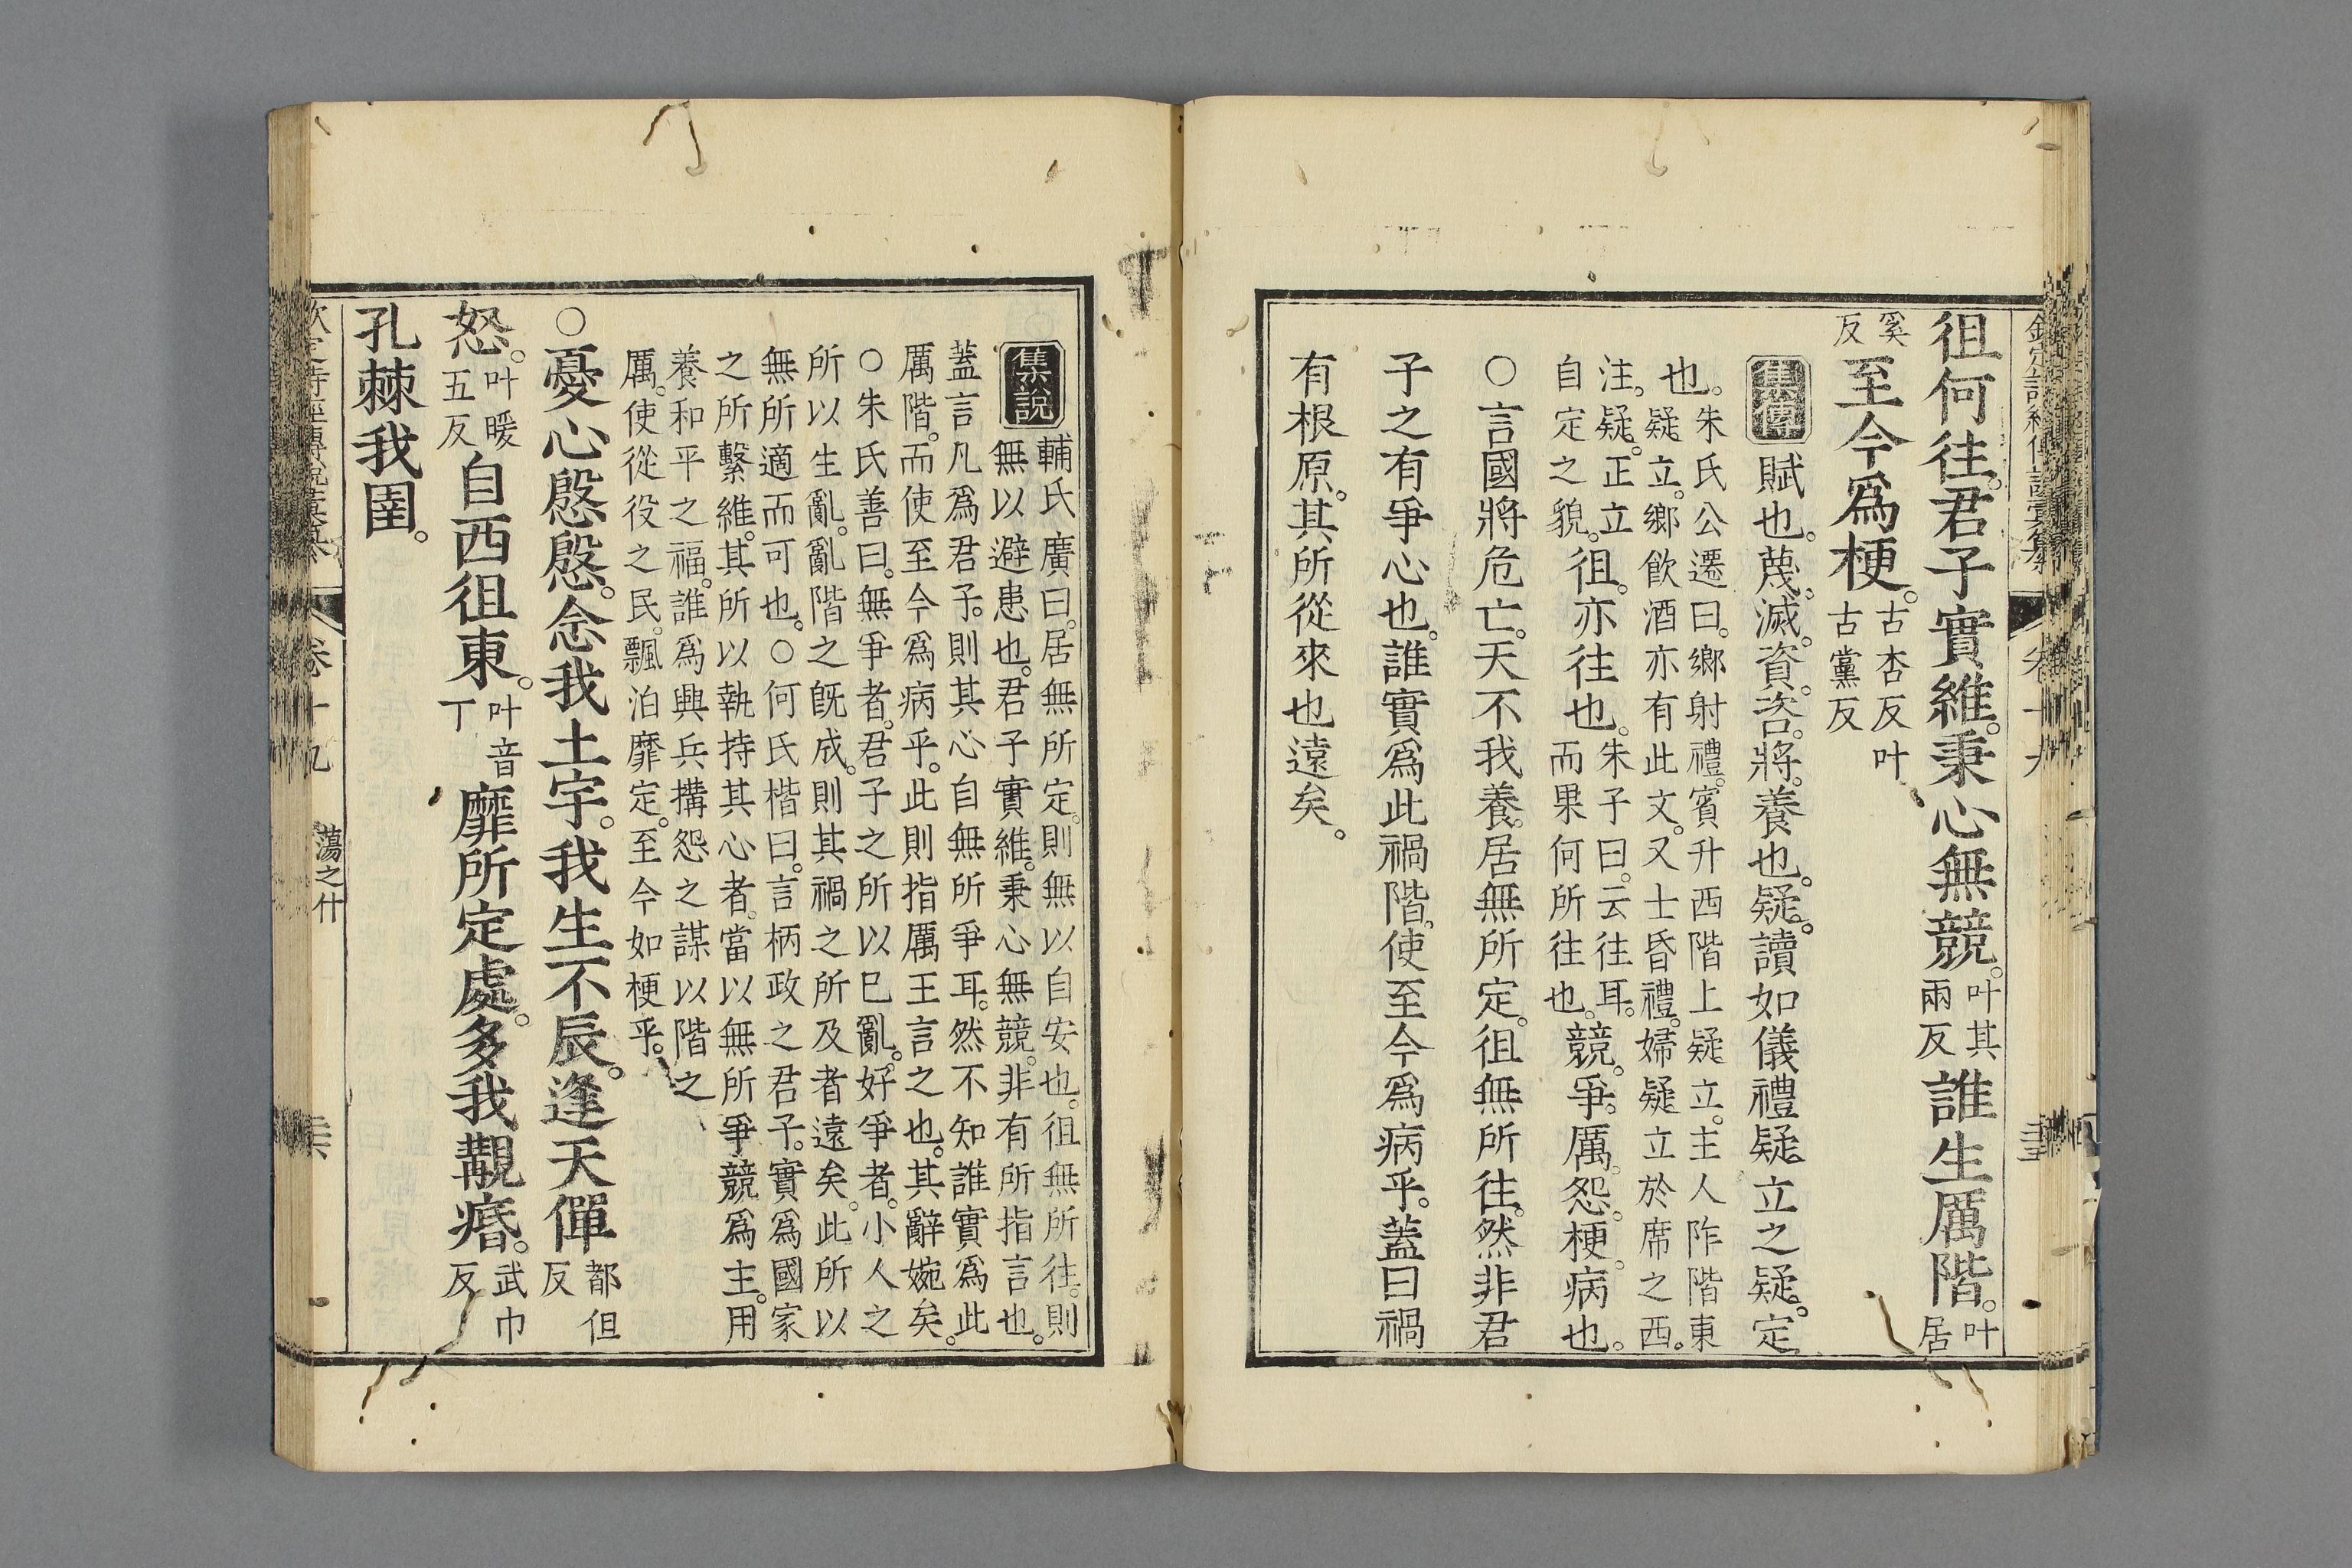 欽定詩經傳說彙纂 卷十九
徂何往。君子實維。秉心無競。叶其兩反誰生厲階。叶居
奚反至今爲梗。古杏反叶古黨反
集傳 賦也。蔑。滅。資。咨。將。養也。疑。讀如儀禮疑立之疑。定
也。朱氏公遷曰。鄉射禮。賓升西階上疑立。主人阼階東疑立。鄉飲酒亦有此文。又士昏禮。婦疑立於席之西。
注。疑。正立自定之貌。徂。亦往也。朱子曰。云往耳。而果何所往也。競。爭。厲。怨。梗。病也。
○言國將危亡。天不我養。居無所定。徂無所往。然非君
子之有爭心也。誰實爲此禍階。使至今爲病乎。蓋曰禍
有根原。其所從來也遠矣。
集說 輔氏廣曰。居無所定。則無以自安也。徂無所往。則
無以避患也。君子實維。秉心無競。非有所指言也。
蓋言凡爲君子。則其心自無所爭耳。然不知誰實爲此
厲階。而使至今爲病乎。此則指厲王言之也。其辭婉矣。
○朱氏善曰。無爭者。君子之所以已亂。好爭者。小人之
所以生亂。亂階之既成。則其禍之所及者遠矣。此所以
無所適而可也。○何氏楷曰。言柄政之君子。實爲國家
之所繫維。其所以執持其心者。當以無所爭競爲主。用
養和平之福。誰爲興兵搆怨之謀以階之
厲。使從役之民。飄泊靡定。至今如梗乎。
○憂心慇慇。念我土宇。我生不辰。逢天僤都但反
怒。叶暖五反自西徂東。叶音丁靡所定處。多我覯痻。武巾反
孔棘我圉。
欽定詩經傳說彙纂 卷十九 蕩之什